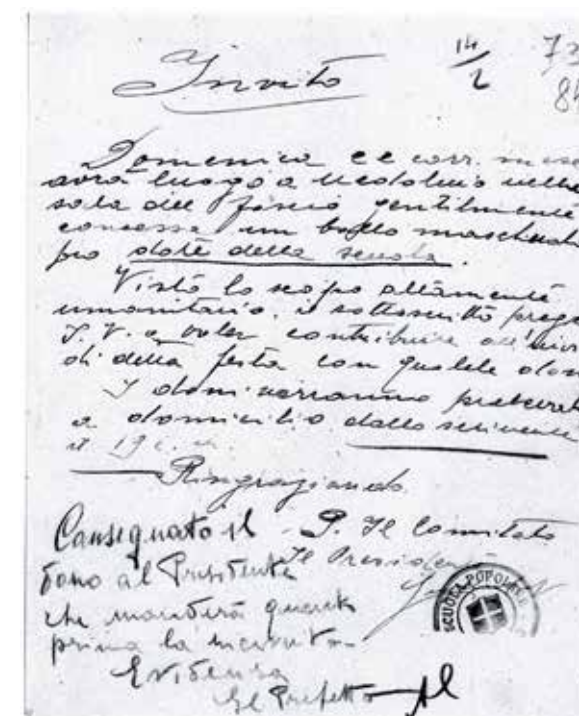 Invito
14/2
73
84
Domenica 22 corr. mese
avrà luogo a Medolino nella
sala del fascio gentilmente
concessa un ballo mascherato
pro dote della scuola.
Visto lo scopo altamente
umanitario, il sottoscritto prega
S. V. a voler contribuire
di detta festa con qualche
I doni verranno prelevati
a domicilio dallo scrivente
il 19 c. m.
Ringraziando.
P. Il Comitato
Il Presidente
Consegnato il
dono al Presidente
che manderà quanto
prima la ricevuta
Evidenza
Il Prefetto
SCUOLA POPOLARE